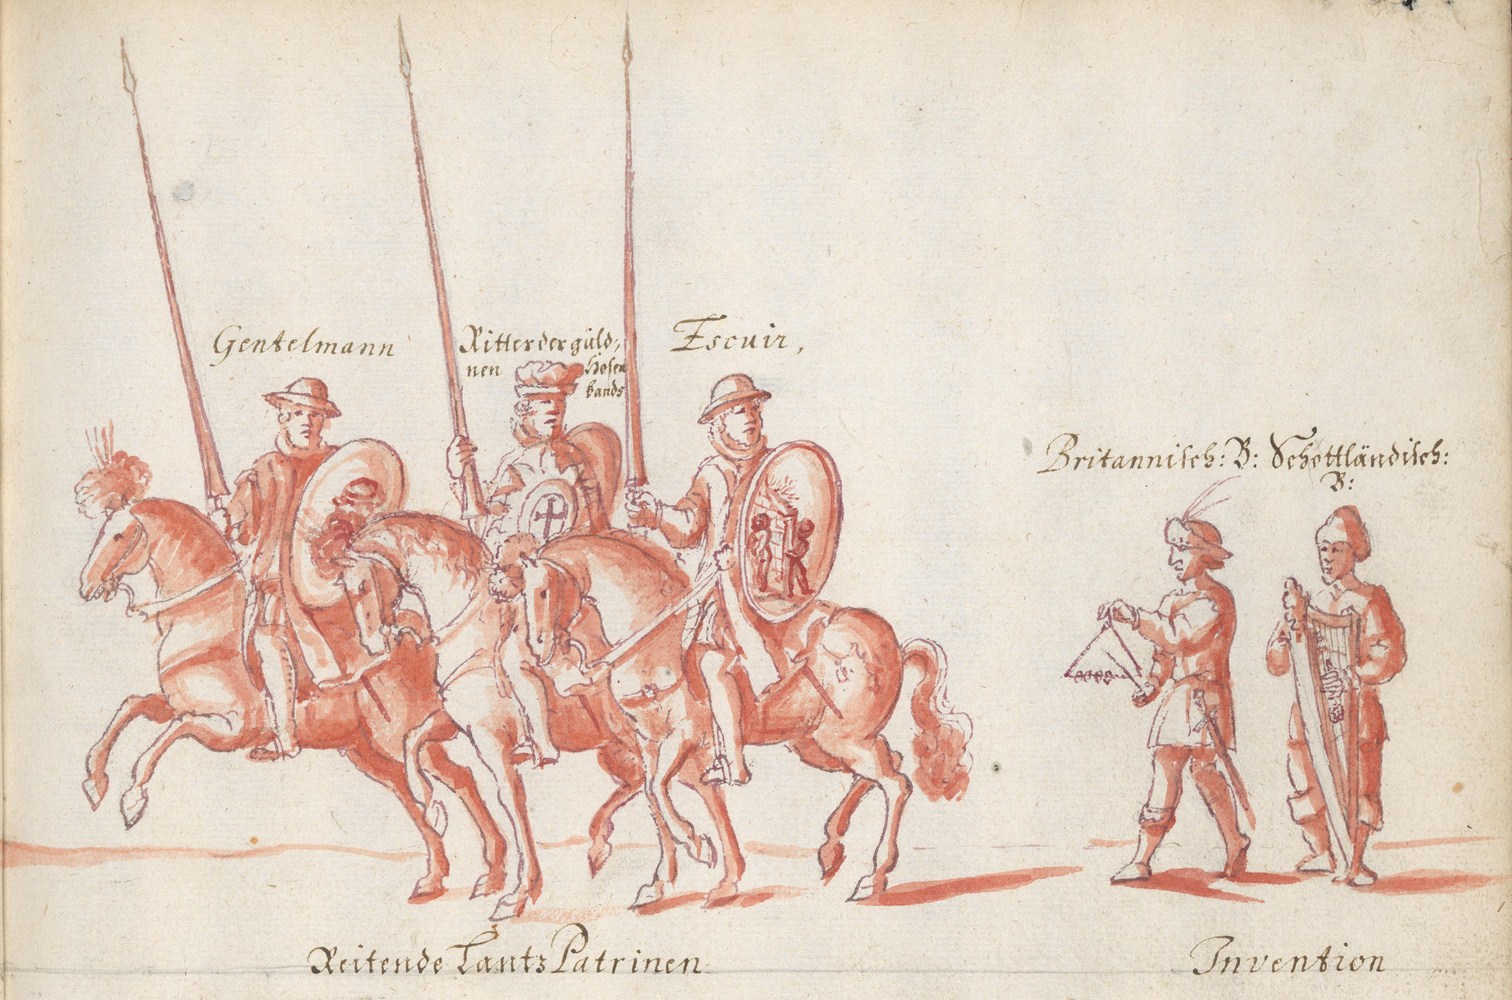 Gentelmann
Ritter der güld,
nen Hosen
bands
Escuir,
Britannisch: B: Schottländisch:
B:
Reitende Lantz Patrinen
Invention